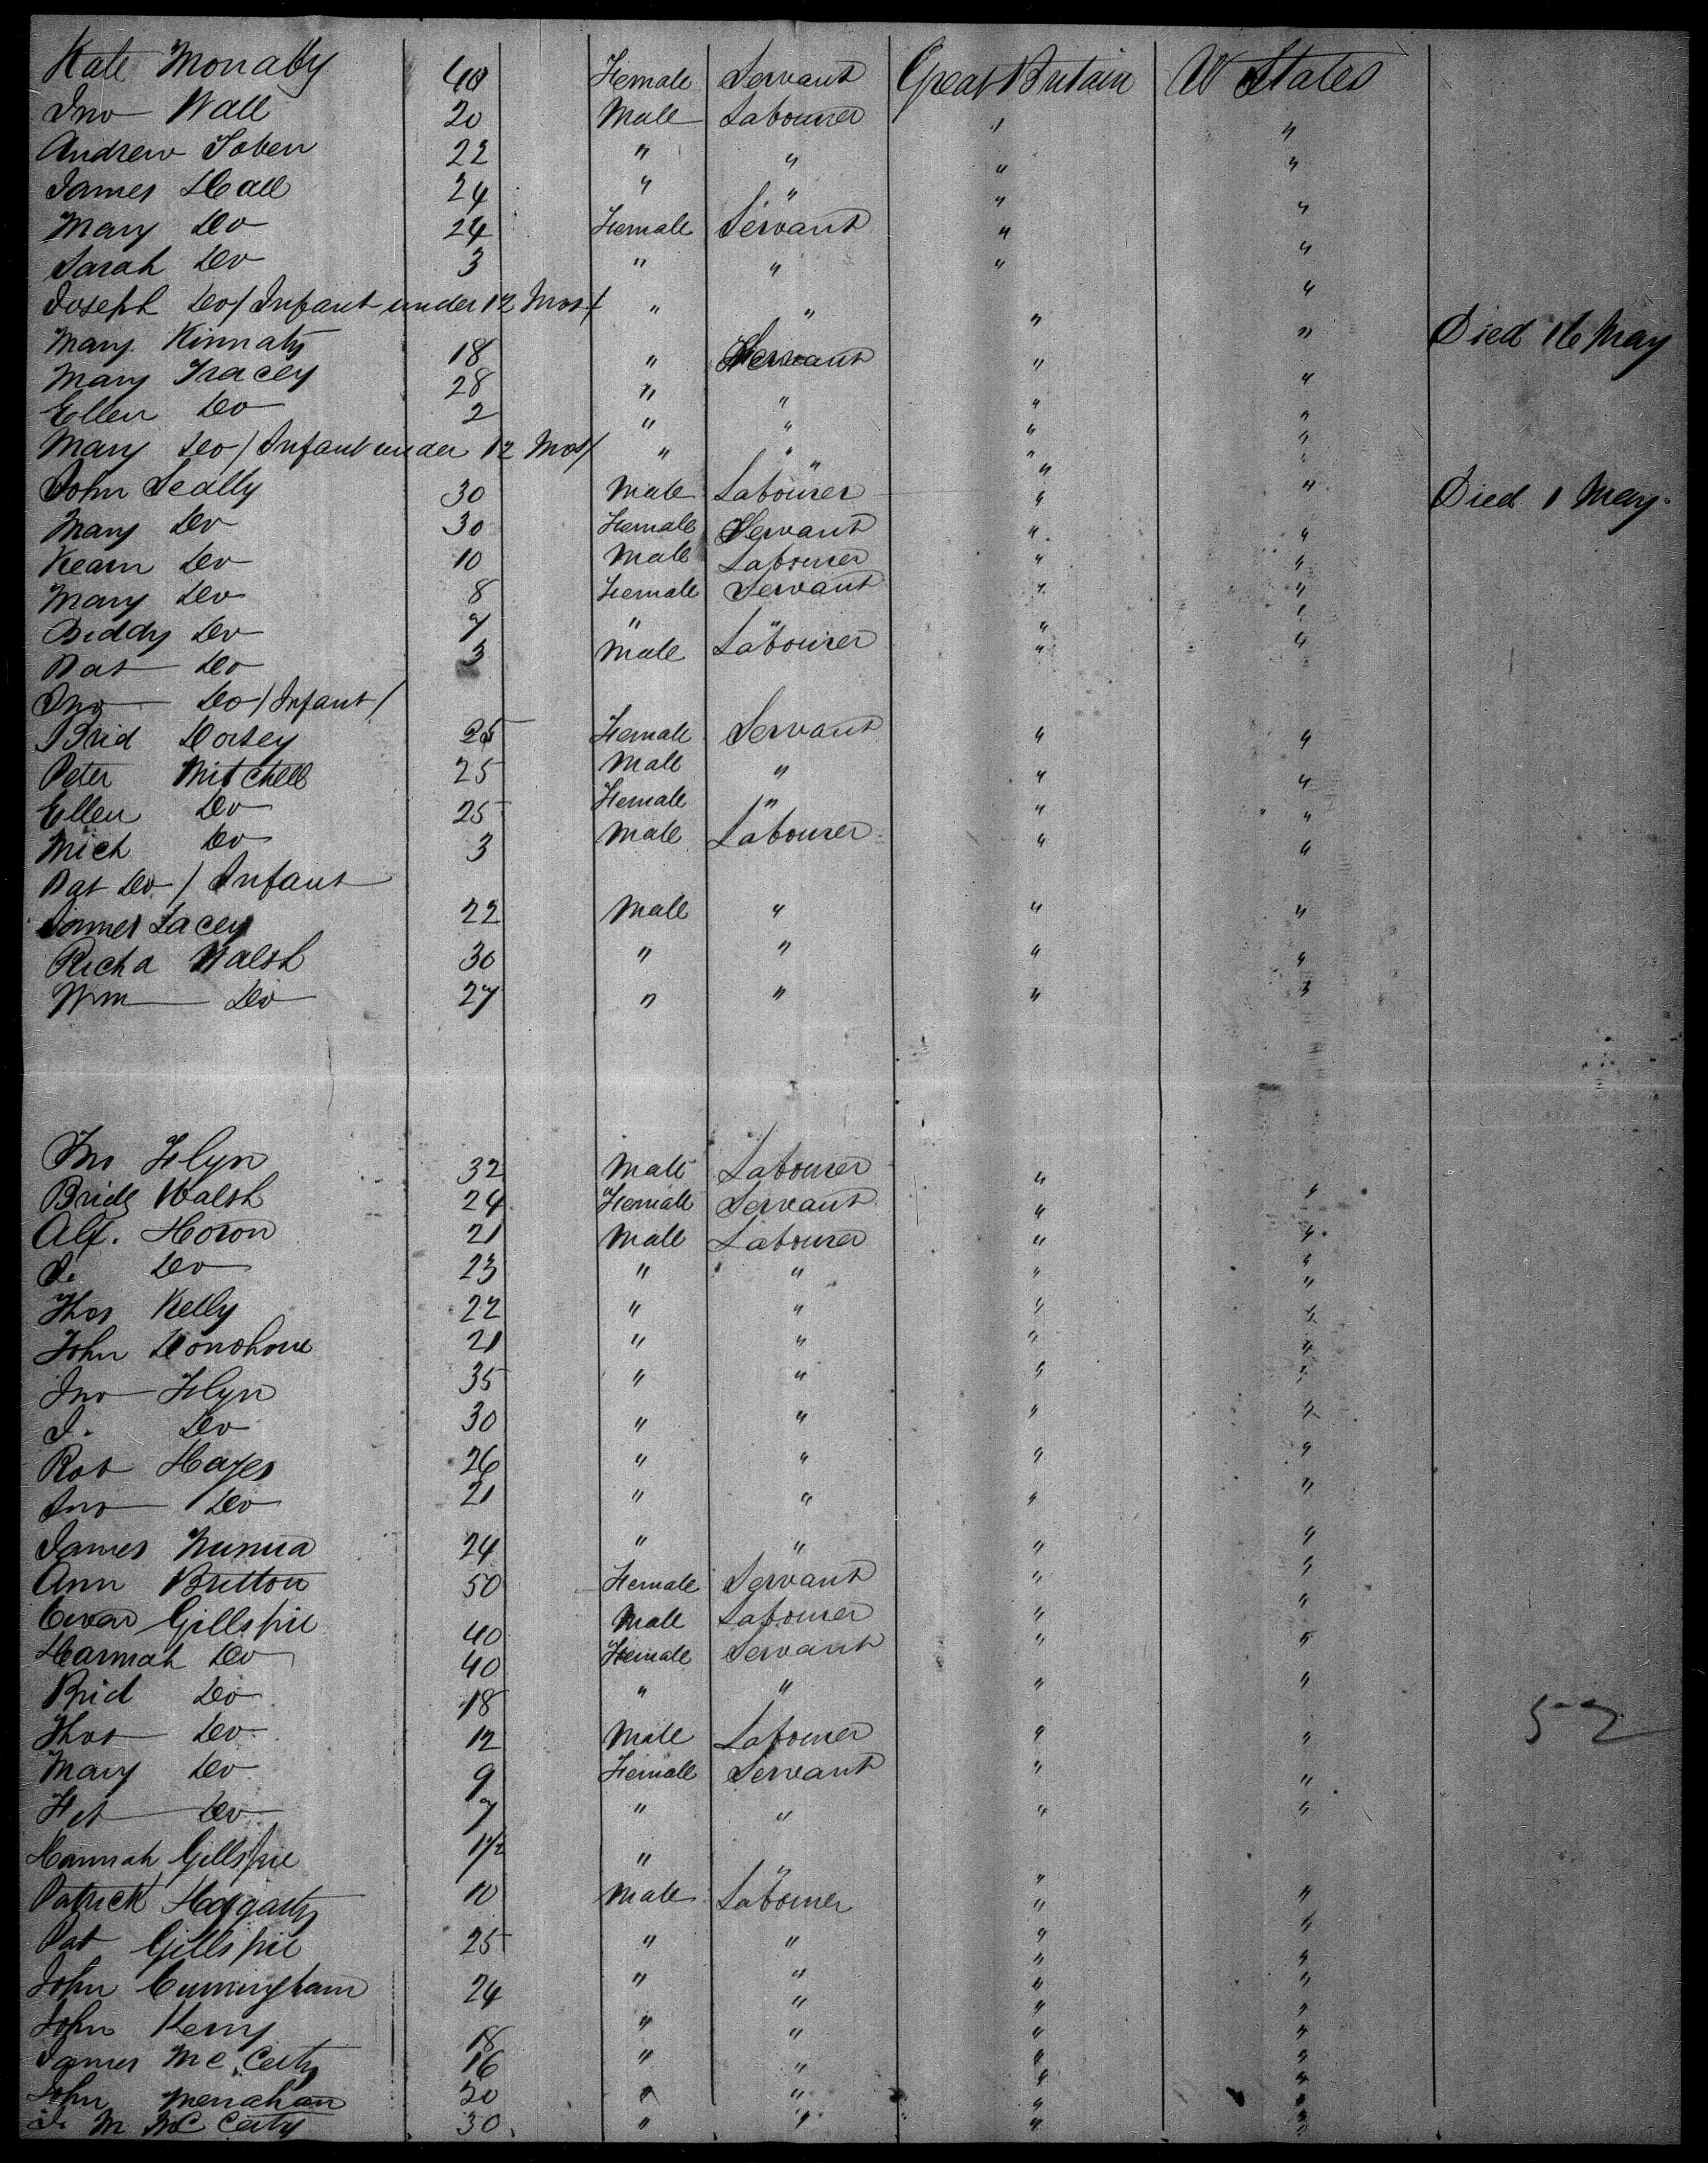 Kate Monally 40 Female Servant Great Britain U States
Jno Wall 20 Male Labourer " "
Andrew Toben 22 " " " "
James Hall 24 " " " "
Mary Do 24 Female Servant " "
Sarah Do 3 " " " "
Joseph Do / Infant under 12 Mos / " " " " Died 16 May
Mary Kinnaty 18 " Servant " "
Mary Tracey 28 " " " "
Ellen Do 2 " " " "
Mary Do / Infant under 12 Mos / " " " "
John Scally 30 Male Labourer " " Died 1 May
Mary Do 30 Female Servant " "
Kearn Do 10 Male Labourer " "
Mary Do 8 Female Servant " "
Biddy Do 7 " " " "
Pat Do 3 Male Labourer " "
Jno Do / Infant /
Brid Dorsey 25 Female Servant " "
Peter Mitchell 25 Male " " "
Ellen Do 25 Female " " "
Mich Do 3 Male Labourer " "
Pat Do / Infant
James Lacey 22 Male " " "
Richd Walsh 30 " " " "
Wm Do 27 " " " "
Jno Flyn 32 Male Labourer " "
Bridg Walsh 24 Female Servant " "
Alf. Horon 21 Male Labourer " "
J. Do 23 " " " "
Thos Kelly 22 " " " "
John Donohoue 21 " " " "
Jno Flyn 35 " " " "
J. Do 30 " " " "
Rob Hayes 26 " " " "
Jno Do 21 " " " "
James Nunua 24 " " " "
Ann Britton 50 Female Servant " "
Ewan Gillspie 40 Male Labourer " "
Hannah Do 40 Female Servant " "
Brid Do 18 " " " "
Thos Do 12 Male Labourer " "
Mary Do 9 Female Servant " "
Het Do 7 " " " "
Hannah Gillspie 1 1/2 " " "
Patrick Hagarty 10 Male Labourer " "
Pat Gillspie 25 " " " "
John Cunningham 24 " " " "
John Kerny 18 " " " "
James Mc Carty 16 " " " "
John Menahan 20 " " " "
J. M Mc Carty 30 " " " "
52